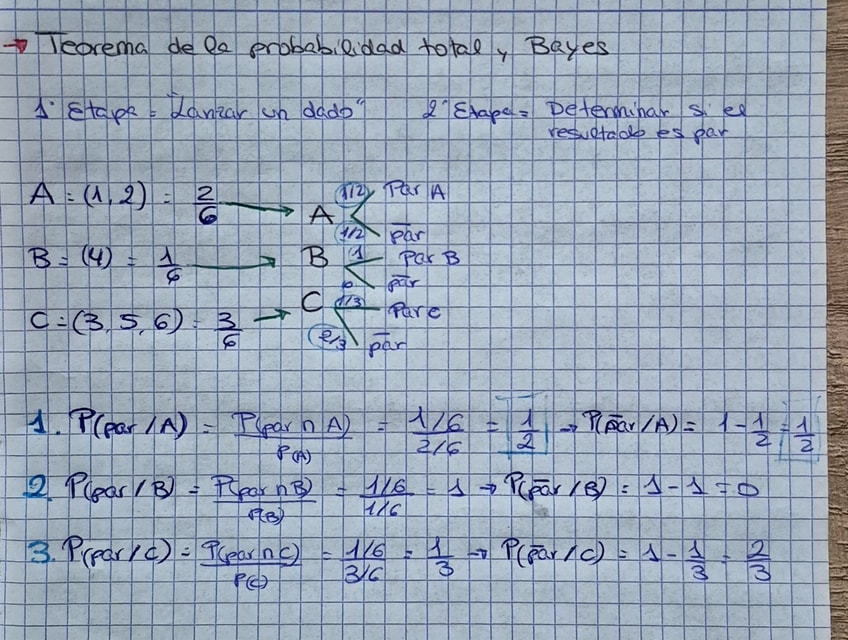 → Teorema de la probabilidad total y Bayes
1ª Etapa = "Lanzar un dado" 2ª Etapa = Determinar si el
resultado es par
A = (1, 2) = 2/6 → A 1/2 Par A
1/2 p̄ar
B = (4) = 1/6 → B 1 Par B
0 p̄ar
C = (3, 5, 6) = 3/6 → C 1/3 Par C
2/3 p̄ar
1. P(par/A) = P(par ∩ A)/P(A) = 1/6/2/6 = 1/2 → P(p̄ar/A) = 1 - 1/2 = 1/2
2. P(par/B) = P(par ∩ B)/P(B) = 1/6/1/6 = 1 → P(p̄ar/B) = 1 - 1 = 0
3. P(par/C) = P(par ∩ C)/P(C) = 1/6/3/6 = 1/3 → P(p̄ar/C) = 1 - 1/3 = 2/3